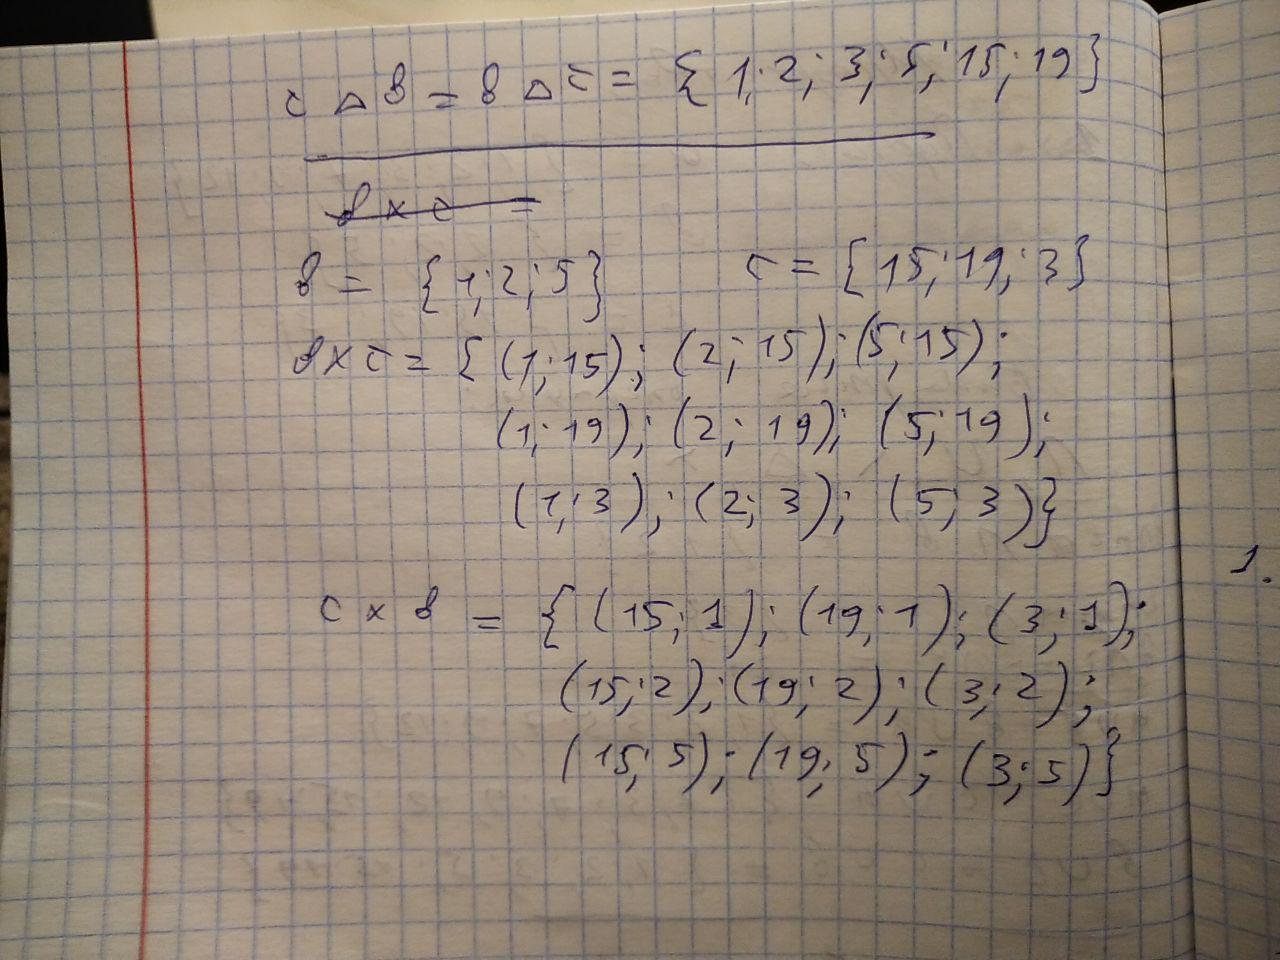 c △ B = B △ C = {1; 2; 3; 5; 15; 19}
B × C =
B = {1; 2; 5} C = {15; 19; 3}
B × C = {(1; 15); (2; 15); (5; 15);
(1; 19); (2; 19); (5; 19);
(1; 3); (2; 3); (5; 3)}
C × B = {(15; 1); (19; 1); (3; 1);
(15; 2); (19; 2); (3; 2);
(15; 5); (19; 5); (3; 5)}
1.